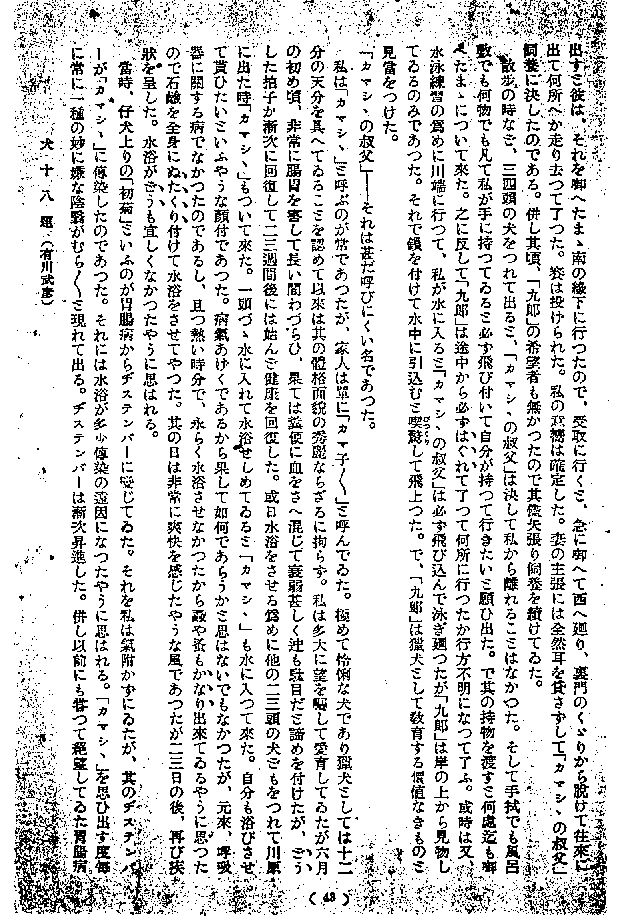 出すと彼は、それを啣へたまゝ南の縁下に行つたので、受取に行くと、急に啣へて西へ廻り、裏門のくゞりから脱けて往來に
出て何所へか走り去つて了つた。賽は投げられた。私の意嚮は確定した。妻の主張には全然耳を貸さずして「カマシヽの叔父」
飼養に決したのである。併し其頃、「九郎」の希望者も無かつたので其儘矢張り飼養を續けてゐた。
散歩の時など、三四頭の犬をつれて出ると、「カマシヽの叔父」は決して私から離れることはなかつた。そして手拭でも風呂
敷でも何物でも凡て私が手に持つてゐると必ず飛び付いて自分が持つて行きたいと願ひ出た。で其の持物を渡すと何處迄も啣
へたまゝについて來た。之に反して「九郎」は途中から必ずはぐれて了つて何所に行つたか行方不明になつて了ふ。或時は又
水泳練習の爲めに川端に行つて、私が水に入ると「カマシヽの叔父」は必ず飛び込んで泳ぎ廻つたが「九郎」は岸の上から見物し
てゐるのみであつた。それで鎖を付けて水中に引込むと喫驚して飛上つた。で、「九郎」は獵犬として敎育する價値なきものと
見當をつけた。
「カマシヽの叔父」――それは甚だ呼びにくい名であつた。
私は「カマシヽ」と呼ぶのが常であつたが、家人は單に「カマ子〱」と呼んでゐた。極めて怜悧な犬であり獵犬としては十二
分の天分を具へてゐることを認めて以來は其の體格面貌の秀麗ならざるに拘らず。私は多大に望を囑して愛育してゐたが六月
の初め頃、非常に腸胃を害して長い間わづらひ、果ては糞便に血をさへ混じて衰弱甚しく迚も駄目だと諦めを付けたが、どう
した拍子か漸次に回復して二三週間後には殆んど健康を回復した。或日水浴をさせる爲めに他の二三頭の犬どもをつれて川原
に出た時「カマシヽ」もついて來た。一頭づゝ水に入れて水浴せしめてゐると「カマシヽ」も水に入つて來た。自分も浴びさせ
て貰ひたいといふやうな顔付であつた。病氣あげくであるから果して如何であらうかと思はないでもなかつたが、元來、呼吸
器に關する病でなかつたのであるし、且つ熱い時分で、永らく水浴させなかつたから蝨や蚤もかなり出來てゐるやうに思つた
ので石鹼を全身にぬたくり付けて水浴をさせてやつた。其の日は非常に爽快を感じたやうな風であつたが二三日の後、再び疾
狀を呈した。水浴がどうも宜しくなかつたやうに思はれる。
當時、仔犬上りの「初菊」といふのが胃腸病からヂステンバーに變じてゐた。それを私は氣附かずにゐたが、其のヂステンバ
ーが「カマシヽ」に傳染したのであつた。それには水浴が多少傳染の遠因になつたやうに思はれる。「カマシヽ」を思ひ出す度每
に常に一種の妙に嫌な陰翳がむら〱と現れて出る。ヂステンバーは漸次昇進した。併し以前にも嘗つて絶望してゐた胃腸病
犬十八題（有川武彦）
（43）